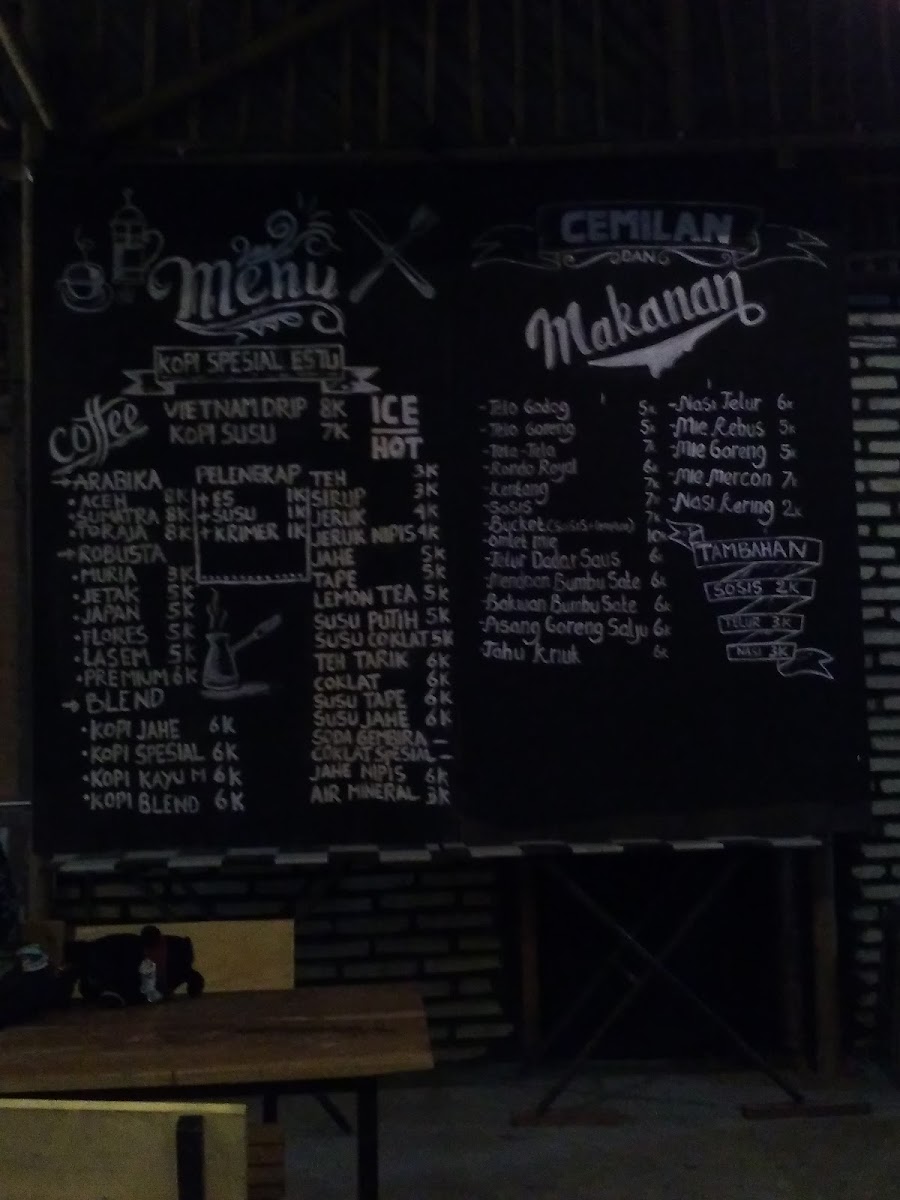 Menu
KOPI SPESIAL ESTU
coffee
VIETNAM DRIP 8K
KOPI SUSU 7K
ICE
HOT
ARABIKA
• ACEH 8K
• SUMATRA 8K
• TORAJA 8K
ROBUSTA
• MURIA 3K
• JETAK 5K
• JAPAN 5K
• FLORES 5K
• LASEM 5K
• PREMIUM 6K
BLEND
• KOPI JAHE 6K
• KOPI SPESIAL 6K
• KOPI KAYU M 6K
• KOPI BLEND 6K
PELENGKAP
+ ES 1K
+ SUSU 1K
+ KRIMER 1K
TEH 3K
SIRUP 3K
JERUK 4K
JERUK NIPIS 4K
JAHE 5K
TAPE 5K
LEMON TEA 5K
SUSU PUTIH 5K
SUSU COKLAT 5K
TEH TARIK 6K
COKLAT 6K
SUSU TAPE 6K
SUSU JAHE 6K
SODA GEMBIRA –
COKLAT SPESIAL –
JAHE NIPIS 6K
AIR MINERAL 3K
CEMILAN
DAN
Makanan
- Telo Godog 5K
- Telo Goreng 5K
- Tela-Tela 7K
- Rondo Royal 6K
- Kentang 7K
- Sosis 7K
- Bucket 7K
- Omlet mie 10K
- Telur Dadar Saus 6K
- Mendoan Bumbu Sate 6K
- Bakwan Bumbu Sate 6K
- Pisang Goreng Salju 6K
- Tahu Kriuk 6K
- Nasi Telur 6K
- Mie Rebus 5K
- Mie Goreng 5K
- Mie Mercon 7K
- Nasi Kering 2K
TAMBAHAN
SOSIS 2K
TELUR 3K
NASI 3K